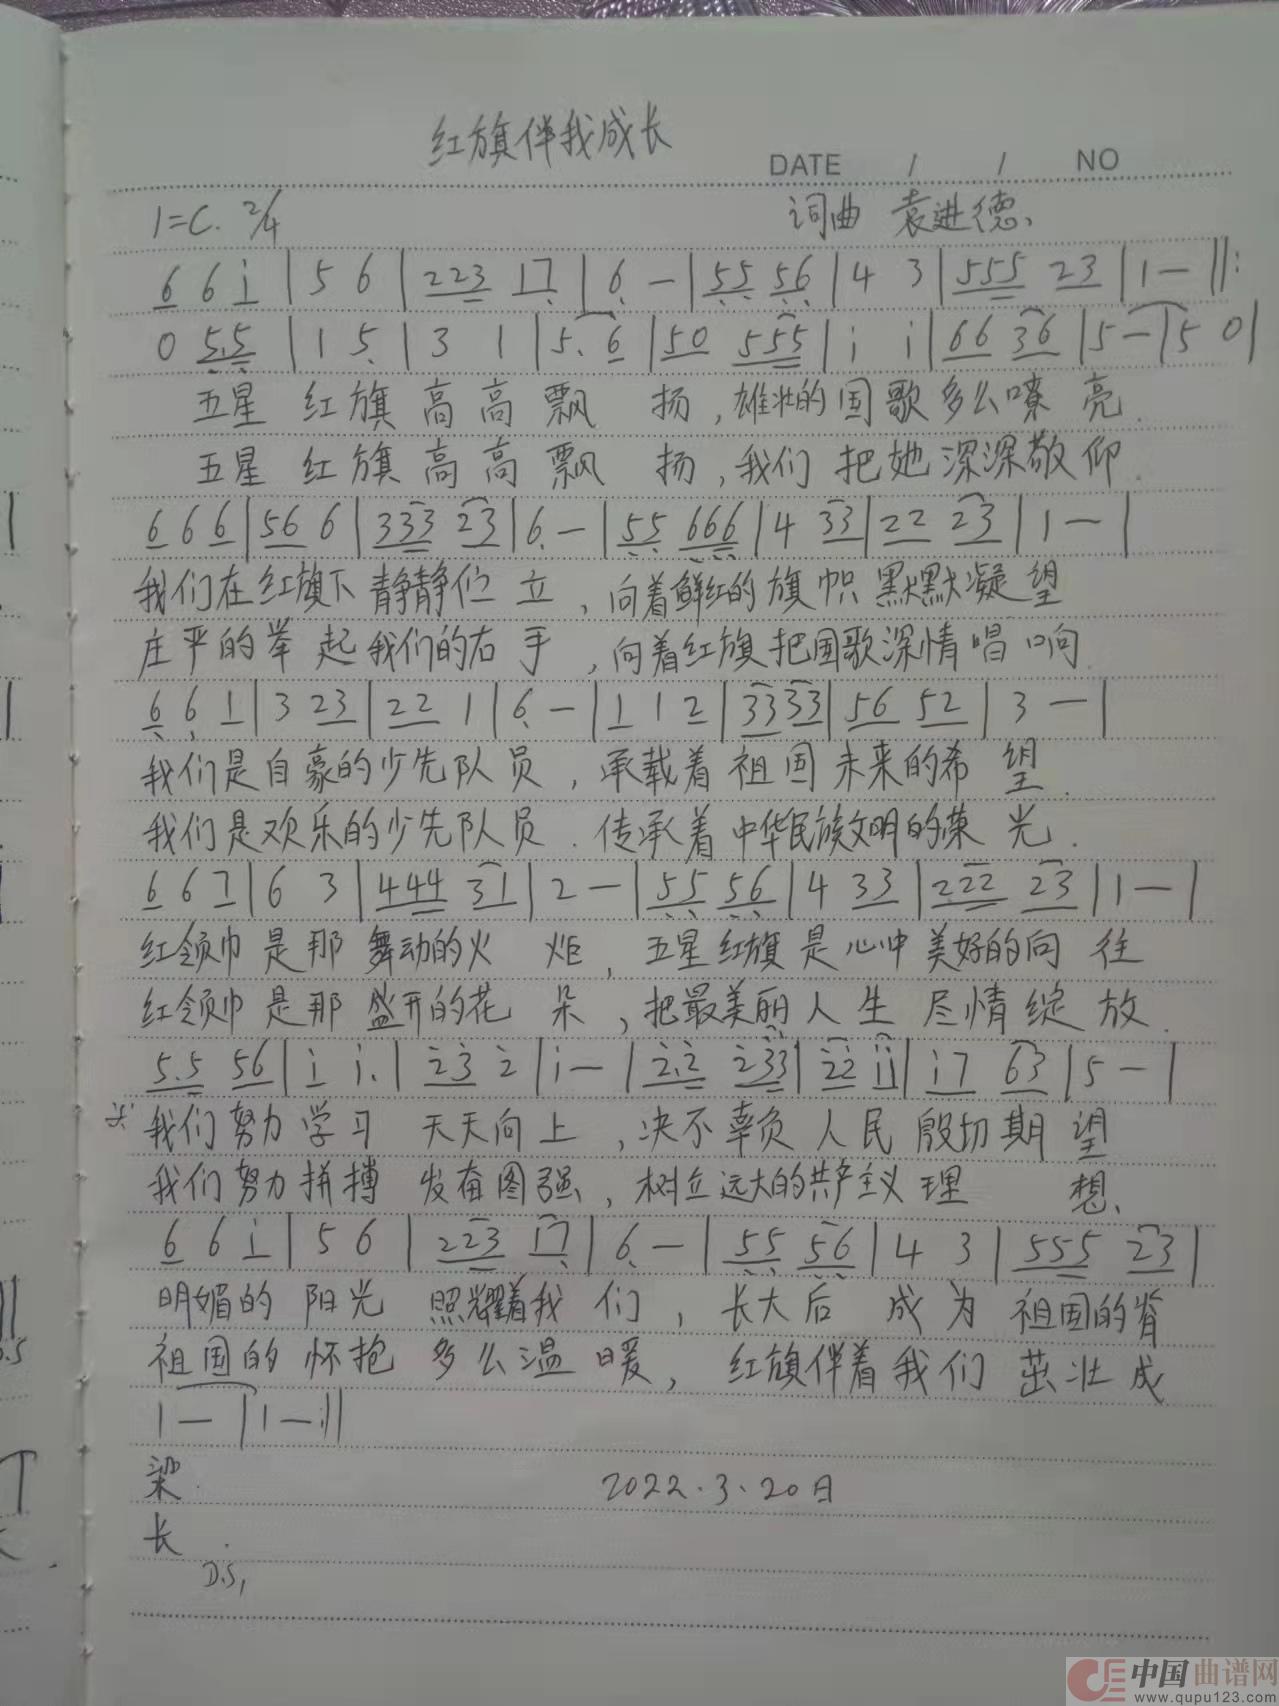 红旗伴我成长
DATE / / NO
1=C. 2/4 词曲 袁进德、
6 6 i | 5 6 | 223 17 | 6 — | 55 56 | 4 3 | 555 23 | 1 — ||:
0 5.5 | 1 5 | 3 1 | 5. 6 | 50 555 | i i | 66 36 | 5 — | 5 0 |
五星 红旗高高飘 扬,雄壮的国歌多么嘹亮.
五星 红旗高高飘 扬,我们把她深深敬仰.
6 6 6 | 56 6 | 333 23 | 6 — | 55 666 | 4 33 | 22 23 | 1 — |
我们在红旗下静静伫立,向着鲜红的旗帜默默凝望
庄严的举起我们的右手,向着红旗把国歌深情唱响.
6 6 1 | 3 23 | 22 1 | 6 — | 1 1 2 | 33 33 | 56 52 | 3 — |
我们是自豪的少先队员,承载着祖国未来的希望.
我们是欢乐的少先队员.传承着中华民族文明的荣光.
6 6 7 | 6 3 | 444 31 | 2 — | 55 56 | 4 33 | 222 23 | 1 — |
红领巾是那舞动的火炬,五星红旗是心中美好的向往
红领巾是那盛开的花朵,把最美丽人生尽情绽放.
5.5 56 | i i. | 23 2 | i — | 2.2 233 | 22 ii | i7 63 | 5 — |
我们努力学习 天天向上,决不辜负人民殷切期望
我们努力拼搏 发奋图强,树立远大的共产主义理想.
6 6 i | 5 6 | 223 17 | 6 — | 55 56 | 4 3 | 555 23 |
明媚的阳光 照耀着我们,长大后成为祖国的脊
祖国的怀抱多么温暖,红旗伴着我们茁壮成
1 — | 1 — :||
梁. 2022.3.20日
长.
D.S,
中国曲谱网
www.qupu123.com